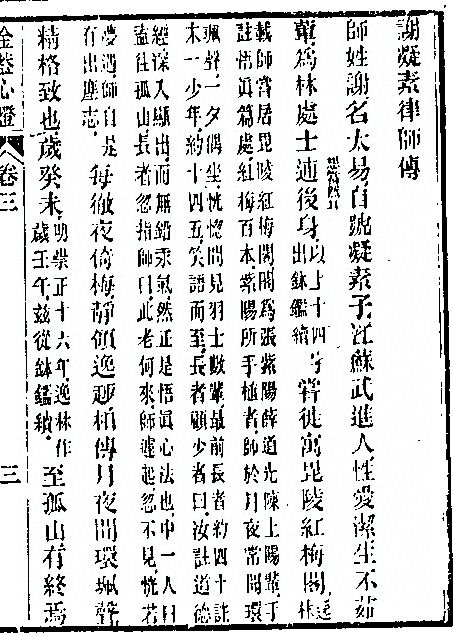 謝凝素律師傳
師姓謝名太易自號凝素子江蘇武進人性愛潔生不茹
葷為林處士逋後身以上十四字出鉢鑑續嘗徙寓毘陵紅梅閣
載師嘗居毘陵紅梅閣閣為張紫陽薛道光陳上陽輩于
註悟眞篇處紅梅百本紫陽所手植者師於月夜常聞環
珮聲一夕偶坐恍惚間見羽士數輩最前長者約四十許
末一少年約十四五笑語而至長者顧少者曰汝註道德
經深入顯出而無鉛汞氣然正是悟眞心法也中一人曰
盍往孤山長者忽指師曰此老何來師遽起忽不見恍若
夢遇師自是
有出塵志
每徹夜倚梅靜領逸趣相傳月夜聞環珮聲
精格致也歲癸未明崇正十六年逸林作歲壬午茲從鉢鑑續至孤山有終焉
金蓋心燈
卷三
三